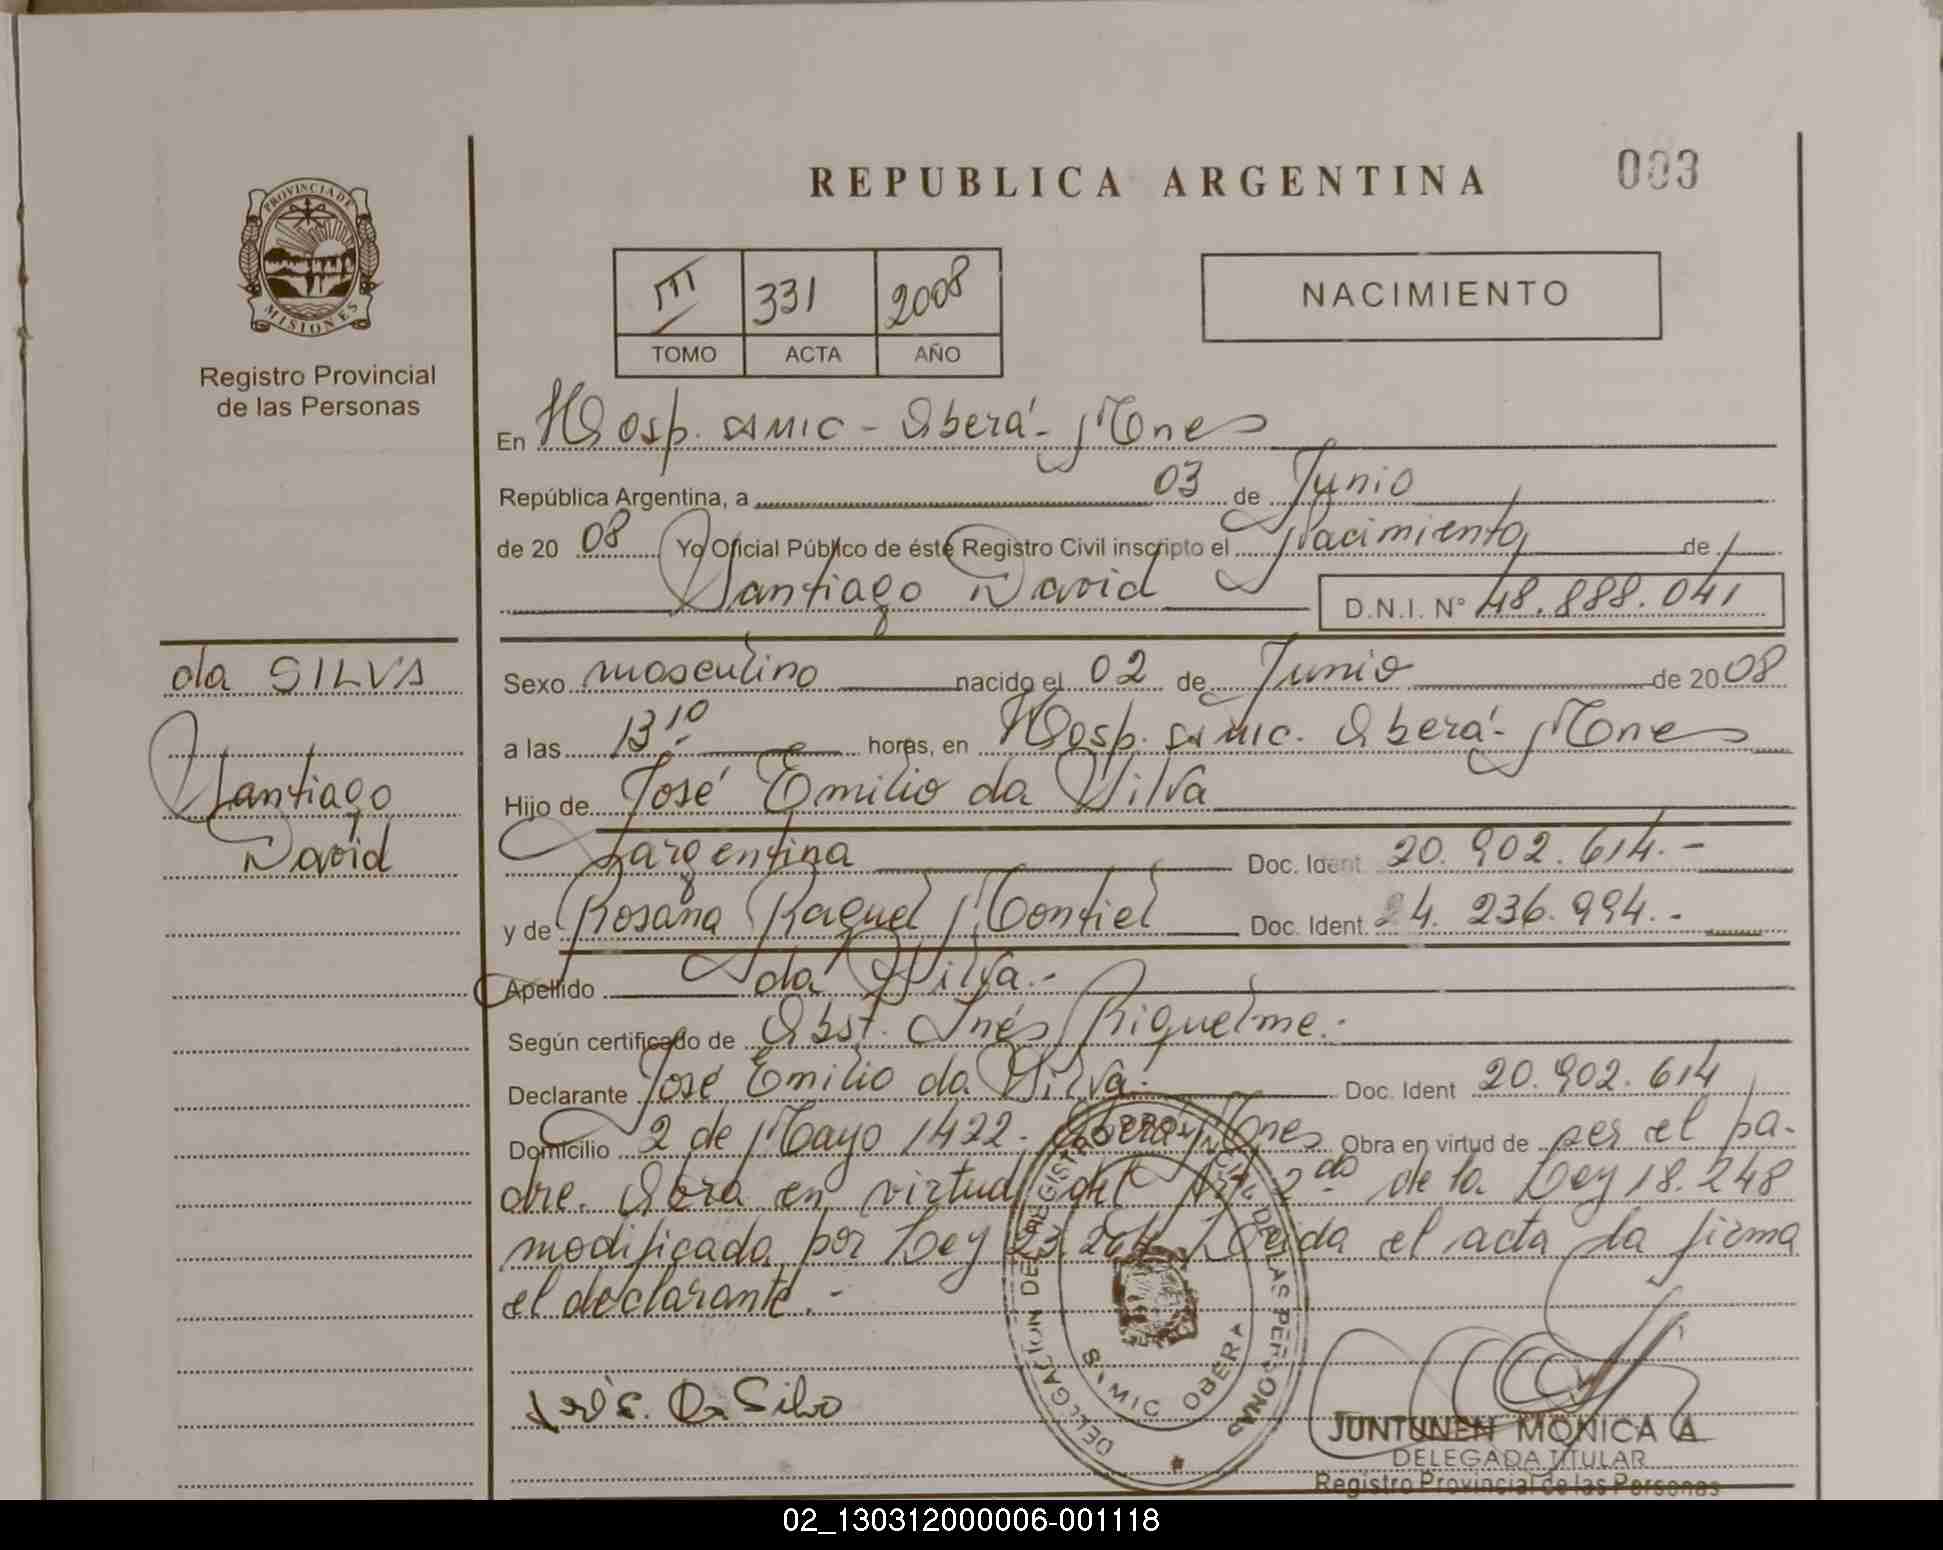 REPUBLICA ARGENTINA
003
PROVINCIA DE
MISIONES
Registro Provincial
de las Personas
III 331 2008
TOMO ACTA AÑO
NACIMIENTO
En Hosp. SAMIC - Oberá - Mnes
República Argentina, a 03 de Junio
de 20 08 Yo Oficial Público de éste Registro Civil inscripto el Nacimiento de
Santiago David D.N.I. N° 48.888.041
da SILVA
Santiago
David
Sexo masculino nacido el 02 de Junio de 20 08
a las 13 10 horas, en Hosp. SAMIC. Oberá - Mnes
Hijo de José Emilio da Silva
argentina Doc. Ident. 20.902.614.-
y de Rosana Raquel Montiel Doc. Ident. 24.236.994.-
Apellido da Silva.-
Según certificado de Obst. Inés Riquelme.-
Declarante José Emilio da Silva.- Doc. Ident 20.902.614
Domicilio 2 de Mayo 1422. Oberá Mnes Obra en virtud de ser el pa-
dre. Obra en virtud del Art. 2do de la Ley 18.248
modificada por Ley 23.264 Leída el acta la firma
el declarante.-
José. Da Silva
DELEGACION DEL REGISTRO PROVINCIAL DE LAS PERSONAS
SAMIC OBERA
JUNTUNEN MONICA A
DELEGADA TITULAR
Registro Provincial de las Personas
02_130312000006-001118